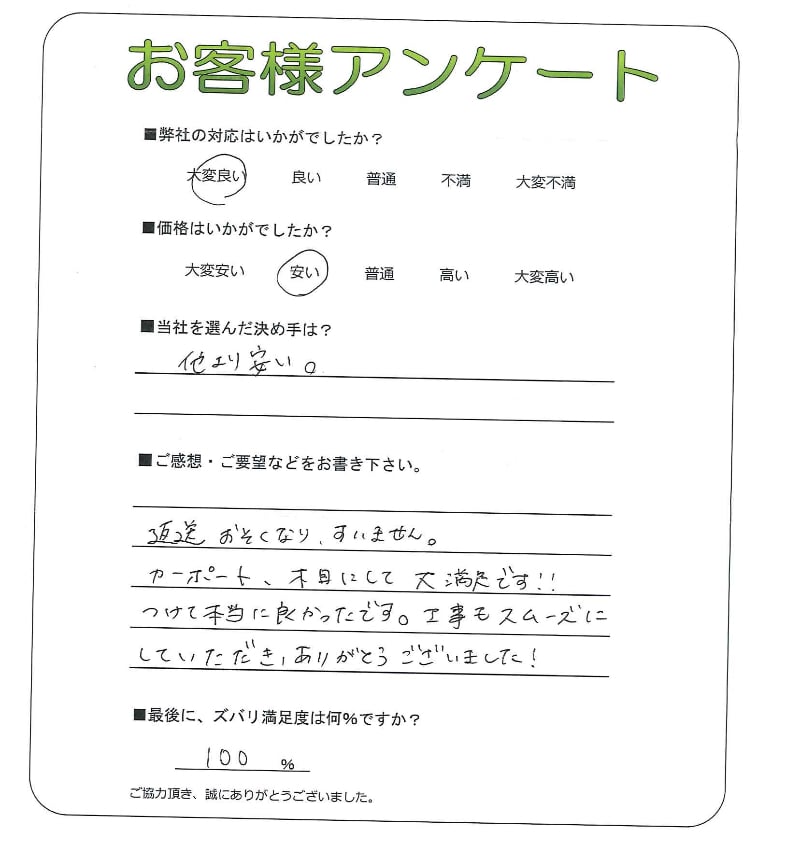 お客様アンケート
■弊社の対応はいかがでしたか？
大変良い 良い 普通 不満 大変不満
■価格はいかがでしたか？
大変安い 安い 普通 高い 大変高い
■当社を選んだ決め手は？
他より安い。
■ご感想・ご要望などをお書き下さい。
返送 おそくなり、すいません。
カーポート、木目にして 大満足です!!
つけて本当に良かったです。工事もスムーズに
していただき、ありがとうございました!
■最後に、ズバリ満足度は何%ですか？
100 %
ご協力頂き、誠にありがとうございました。